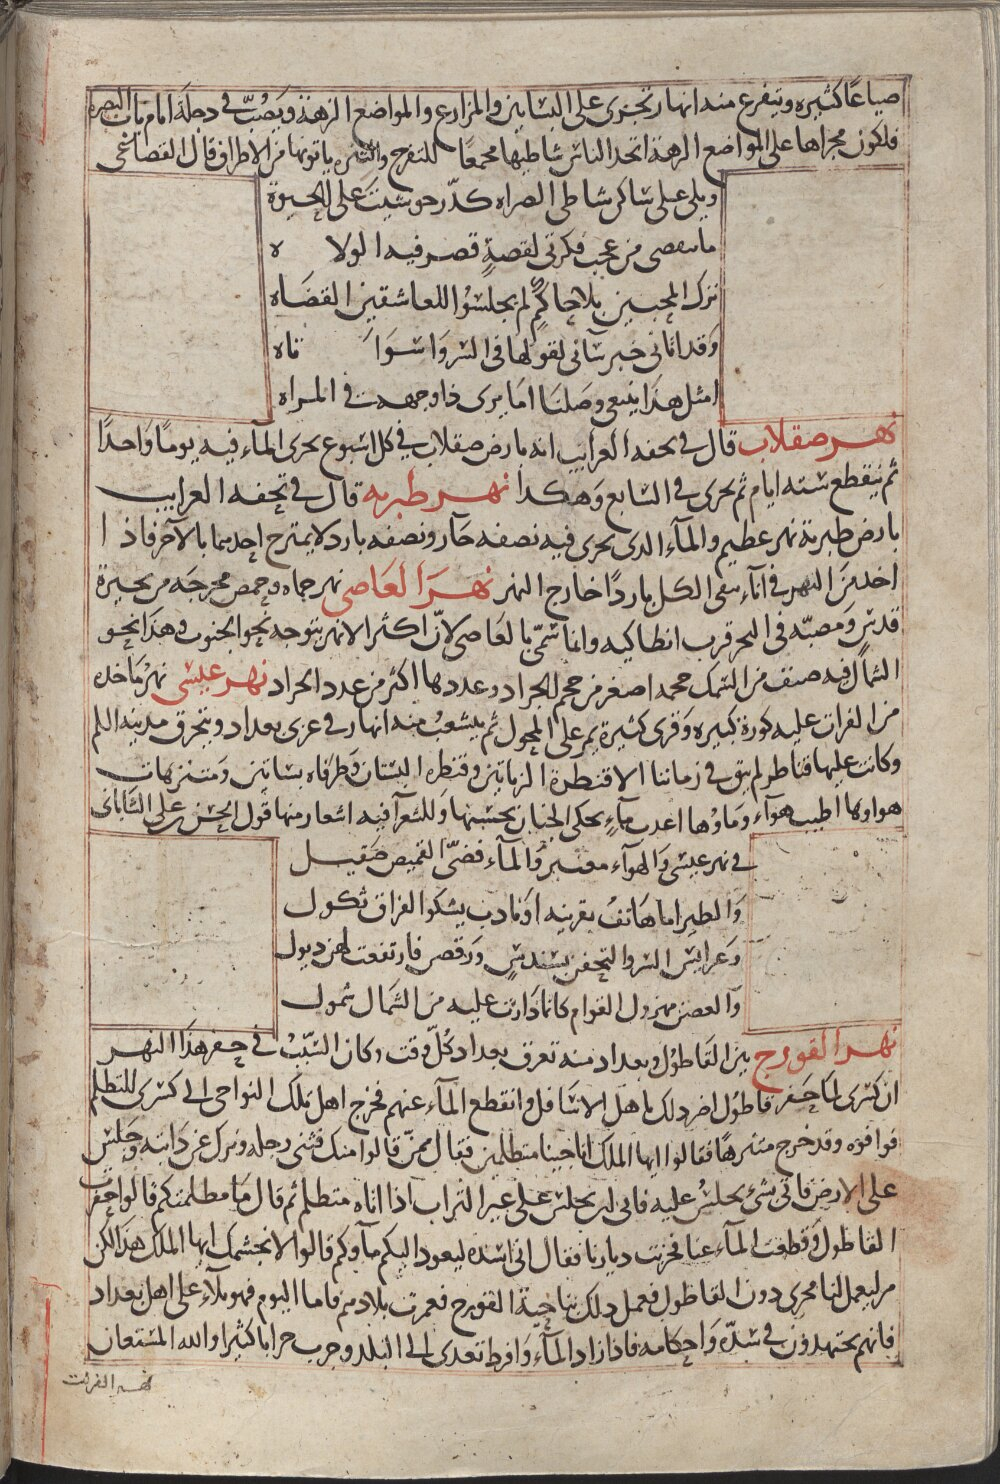 ضياعًا كثيره ويتفرع منه انهار تجرى على البساتين والمزارع والمواضع النزهة ويصُبّ في دجلة امام باب البصره
فلكون مجراها على المواضع النزهة اتخد الناس شاطيها مجمعًا للتفرج والتنزه ياتونها من الاطراف قال القصاعى
ويلى على ساكن شاطى الصراه كدّر حوشيتَ على الحيوة
ما سعصى من عجب فكرتى لقصةٍ قصر فيها الولاه
ترك المحبين بلا حاكمٍ لم يجلسُوا للعاشقين القضَاه
وَقد اتانى خبر سآنى لقولها فى السر وَا سَوَاتاه
امثل هذا يبتغى وصلنَا امَا يرى ذا وجهه فى المراه
نهر صقلاب قال فى تحفه الغرايب انه بارض صقلاب فى كل اسبوع يجرى المآء فيه يومًا وَاحدًا
ثم ينقطع سته ايام ثم يجرى فى السابع وَهكدا نهر طبريه قال فى تحفه الغرايب
بارض طبرية نهر عظيم والمآء الدى يجرى فيه نصفه حَار ونصفه بارد لا يمترج احدهما بالآخر فاذا
اخد من النهر فى اناء يبقى الكل باردًا خارج النهر نهر العاصى نهر حماه وحمص مخرجَه من بحيرة
قدسٍ وَمصبّه فى البحر قرب انطاكيه وانما سُمّى بالعَاصى لانّ اكثر الانهر يتوجه نحوا لجنوب وهذا نحو
الشمال فيه صنف من السّمك حجمه اصغر من حجم الجراد وعددها اكثر من عدد الجراد نهر عيسى نهر مَاخده
من الفرات عليه كورة كبيره وَقرى كثيرة يمر على المحول ثم يتشعبُ منه انهار فى غربى بغداد ويتخرق مدينه السلم
وكانت عليها قناطر لم يبق فى زماننا الا قنطرة الزياتين وقنطره البستان وَطرفاه بساتين وَمتنزهات
هواوها اطيب هوآء وَمَاؤها اعدب مآءٍ يحكى الجنان بحسنها وَللشعرآ فيه اشعار منها قول الحسن بن على الشاباتى
فى نهر عيسى وَالهوآء معنبر وُالمآء فضىّ القميص صَقيل
وَالطير اما هَاتفُ بقرينه اوَنادب يشكوا الفراق ثكول
وَعرايس السرو التحفن بسندسٍ وَرقصن فارتفعت لهن ديول
وَالغصن مهزول القوام كانما دَارت عليه من الشمال شمول
نهر القورج بين القاطوُل وبغداد منه تعرق بغداد كُلّ وقت وكان السّببُ فى حفر هذَا النهر
ان كسرى لما حَفر قاطوُل اضر دلك باهل الاسَافل وانقطع المآء عنهم فخرج اهل تلك النواحى الى كسرى للتظلم
فوافوه وقد خرج متنزهًا فقالوا ايها الملك انا جينا متظلمين فقال ممنّ قالوا منك فثنى رجله ونزل عن دَابته وَجلس
على الارض فاتى بشئ يجلسُ عليه فابى ان يجلس على غير التراب اذا اتاه متظلم ثم قال مَا مظلمتكم قالوا حفرت
القاطول وَقطعت المآء عنا فخربت ديارنا فقال انى اسده ليعود اليكم مآوكم قالوا لا نجشمك ايها الملك هذا لكن
مر ليعمل لنا مجرى دون القاطول فعمل دلك بناحيَة القورج فعمرت بلادهم فاما اليوم فهو بلآء على اهل بغداد
فانهم يجتهدون فى سدّه وَاحكامه فاذا زاد المآء وَافرط تعدى الى البلد وخرب خرابا كثيرا والله المستعان
نهر الفرات